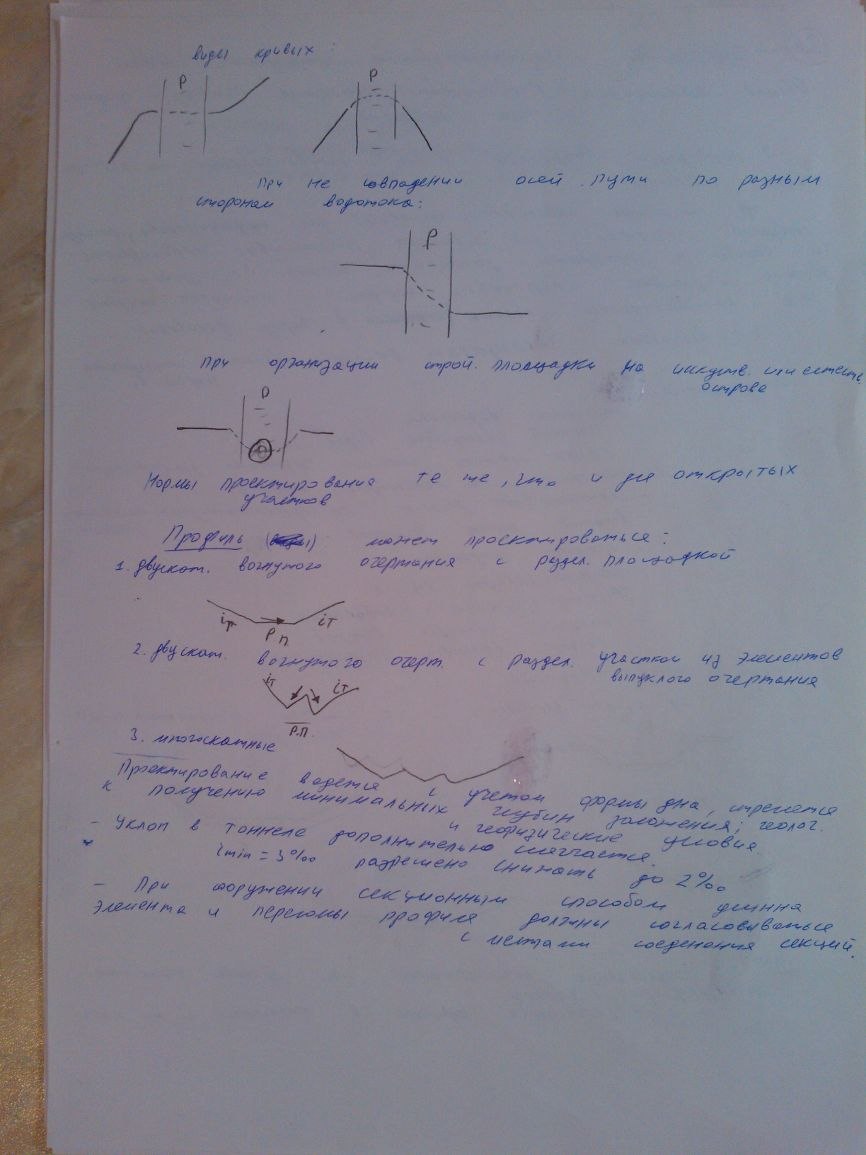 виды кривых:
Р
Р
При не совпадении осей пути по разным
сторонам водотока:
Р
При организации строй. площадки на искуств. или естеств.
острове
Р
Нормы проектирования те же, что и для открытых
участков
Профиль может проектироваться:
1. двускат. вогнутого очертания с раздел. площадкой
iт iт
Р.П.
2. двускат. вогнутого очерт. с раздел. участком из элементов
выпуклого очертания
iт iт
Р.П.
3. многоскатные
Проектирование ведется с учетом формы дна, стремятся
к получению минимальных глубин заложения; геолог.
и геофизические условия
- Уклон в тоннеле дополнительно смягчается.
imin = 3‰ разрешено снижать до 2‰
- При сооружении секционным способом длинна
элемента и переломы профиля должны согласовываться
с местами соеденения секций.